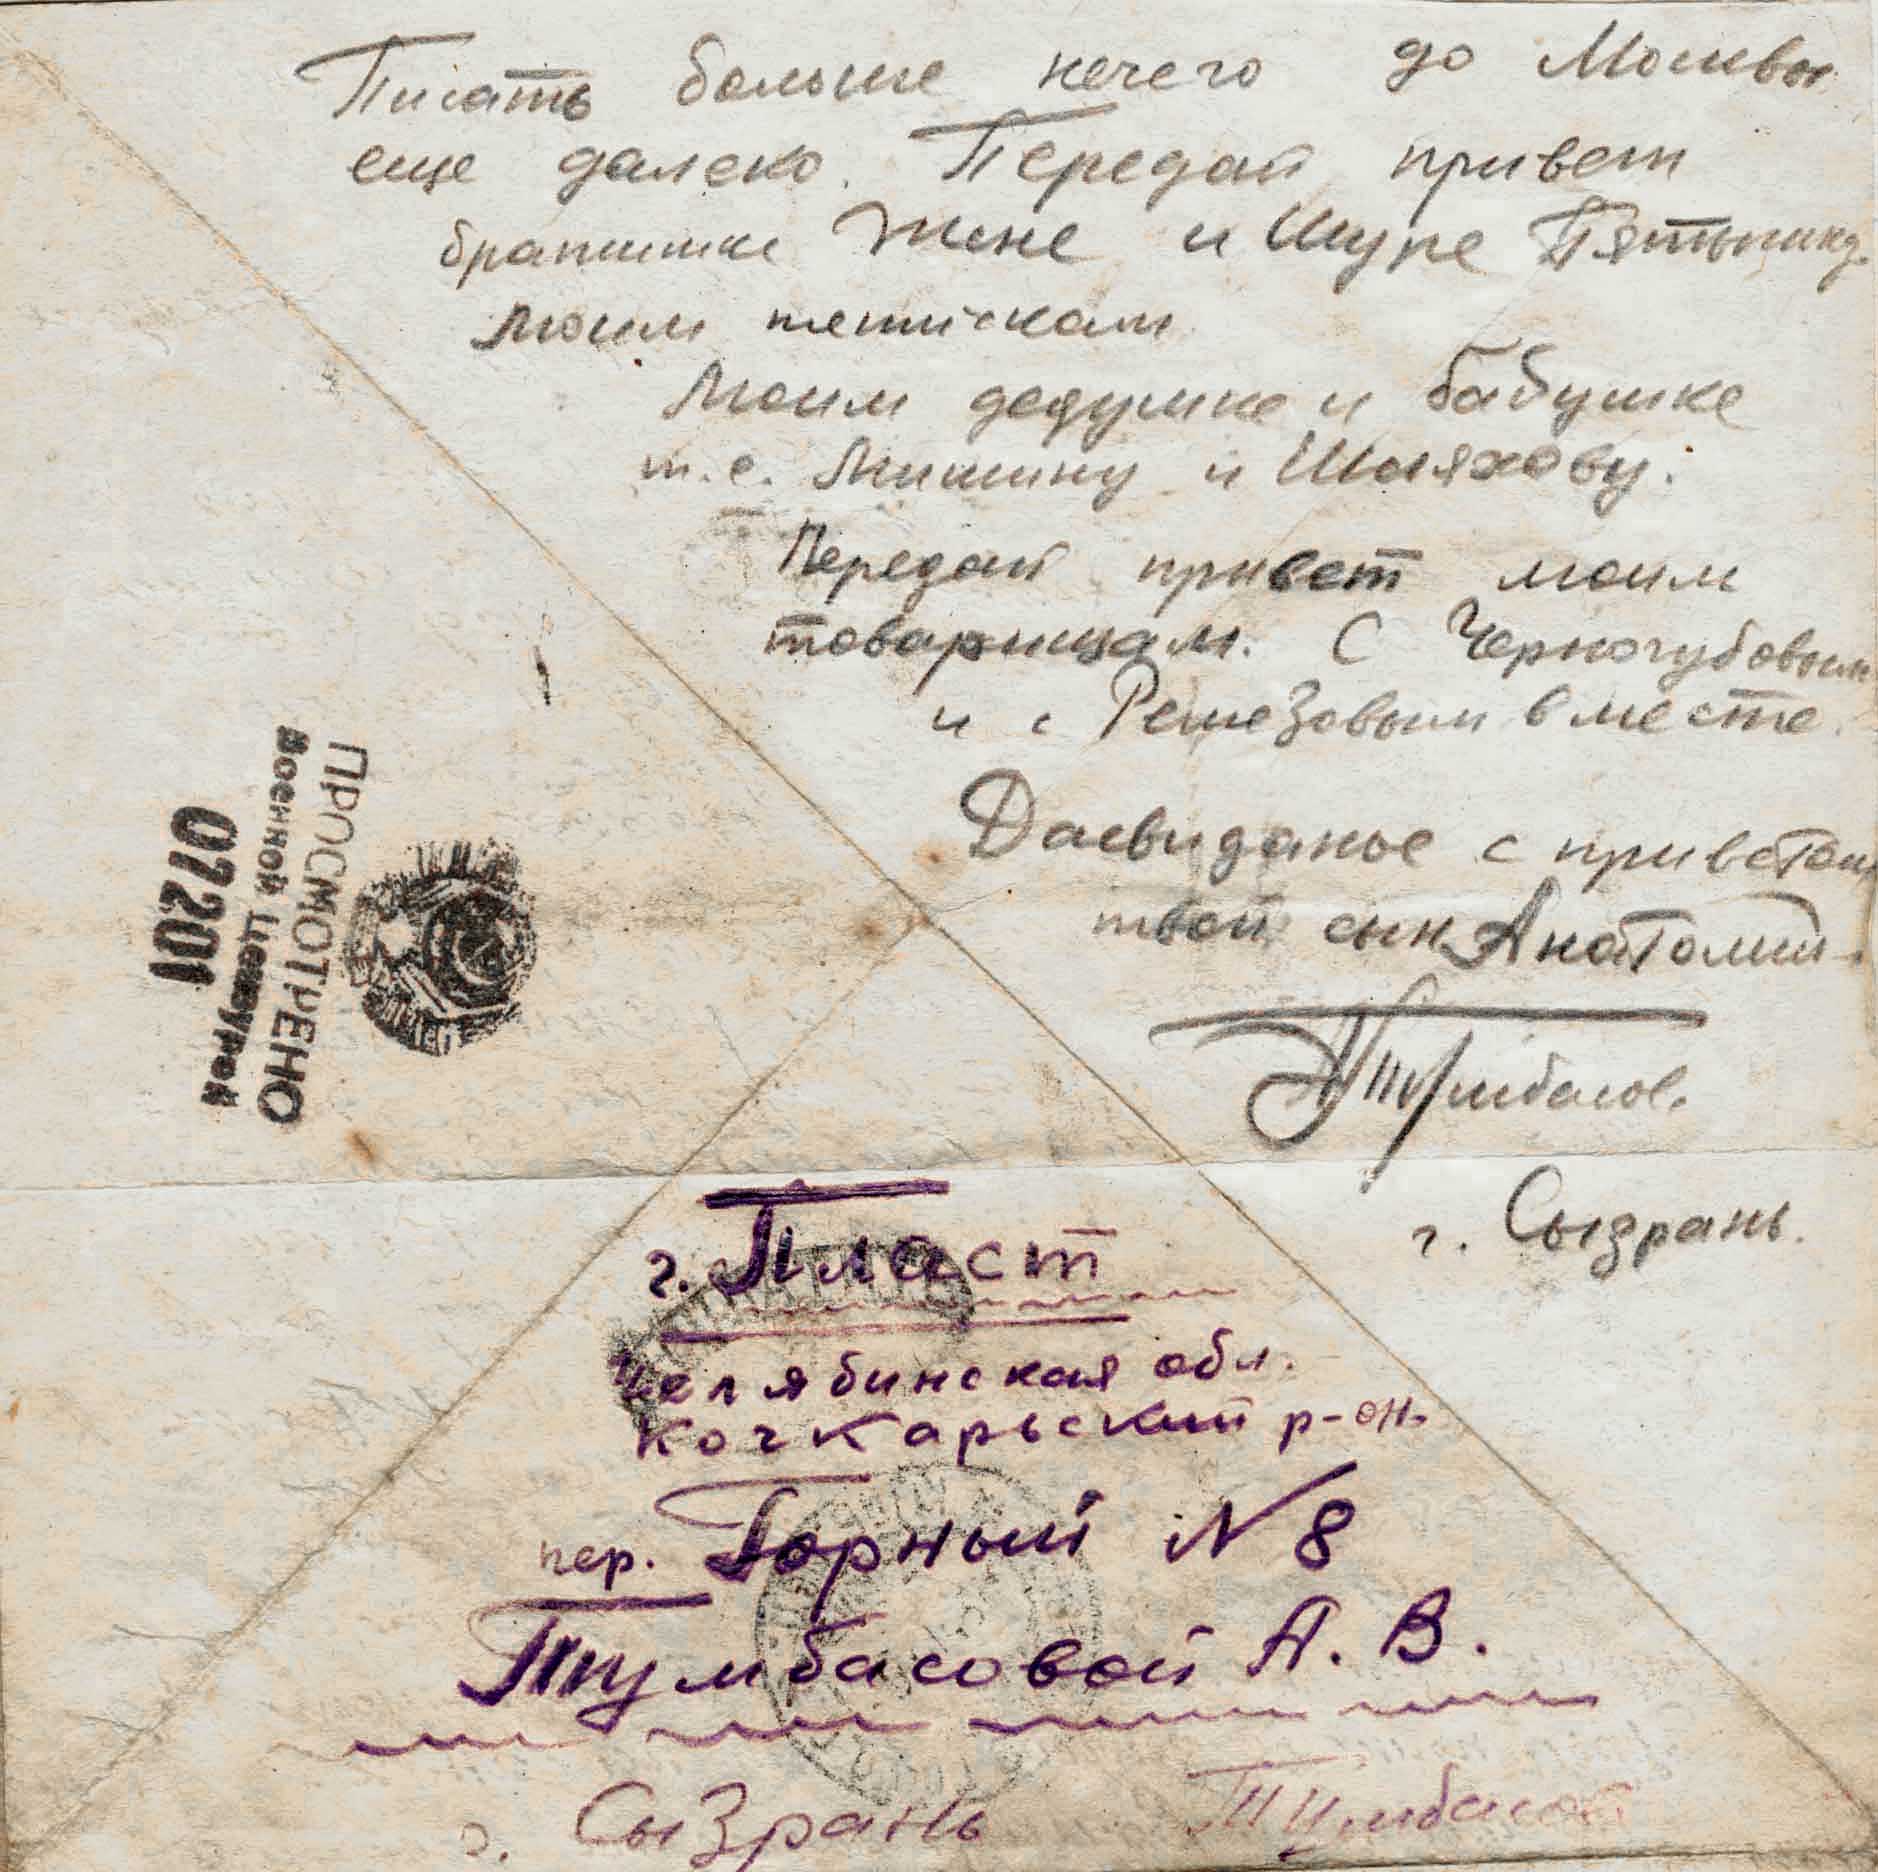 Писать больше нечего до Москвы
еще далеко. Передай привет
братишке Жене и Шуре
моим
Моим дедушке и бабушке
т.е. Мишину и Шляхову.
Передай привет моим
товарищам. С Черногубовым
и с Ремезовым вместе.
Досвиданье с приветом
твой сын Анатолий.
Тумбасов.
г. Сызрань.
ПРОСМОТРЕНО
Военной Цензурой
07201
г. Пласт
Челябинская обл.
Кочкарьский р-он.
пер. Горный N 8
Тумбасовой А. В.
г. Сызрань Тумбасов